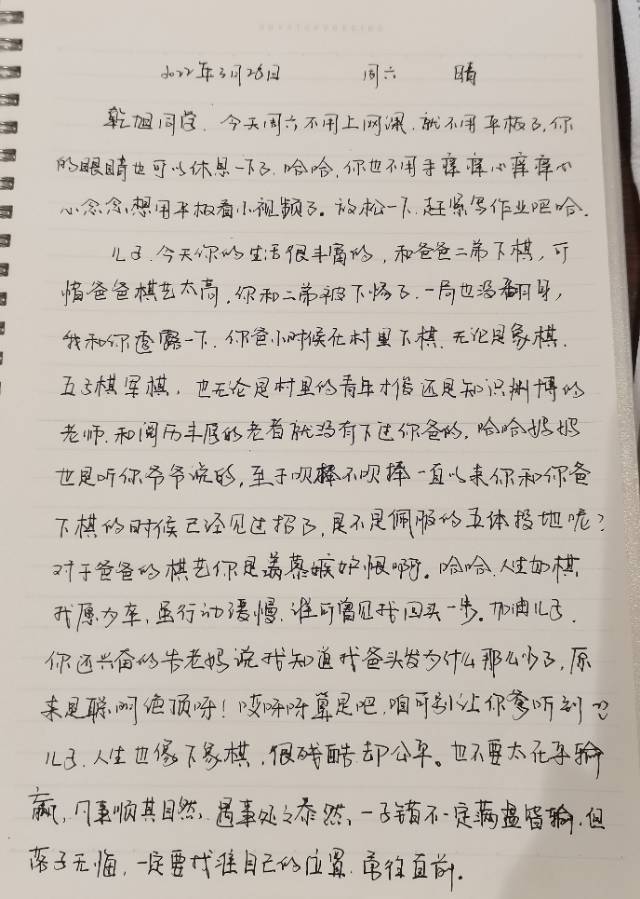 2022年3月26日 周六 晴
乾旭同学，今天周六不用上网课，就不用平板了，你
的眼睛也可以休息一下了，哈哈，你也不用手痒痒心痒痒心
心念念想用平板看小视频了。放松一下，赶紧写作业吧哈。
儿子，今天你的生活很丰富的，和爸爸二弟下棋，可
惜爸爸棋艺太高，你和二弟被下惨了，一局也没翻身，
我和你透露一下，你爸小时候在村里下棋，无论是象棋，
五子棋军棋，也无论是村里的青年才俊还是知识渊博的
老师，和阅历丰厚的老者就没有下过你爸的，哈哈妈妈
也是听你爷爷说的，至于吹捧不吹捧一直以来你和你爸
下棋的时候已经见过招了，是不是佩服的五体投地呢？
对于爸爸的棋艺你是羡慕嫉妒恨啊。哈哈，人生如棋，
我愿为卒，虽行动缓慢，谁可曾见我回头一步。加油儿子，
你还兴奋的告老妈说我知道我爸头发为什么那么少了，原
来是聪明绝顶呀！哎呀呀算是吧，咱可别让你爹听到
儿子，人生也像下象棋，很残酷却公平。也不要太在乎输
赢，凡事顺其自然，遇事处之泰然，一子错不一定满盘皆输，但
落子无悔，一定要找准自己的位置，勇往直前。